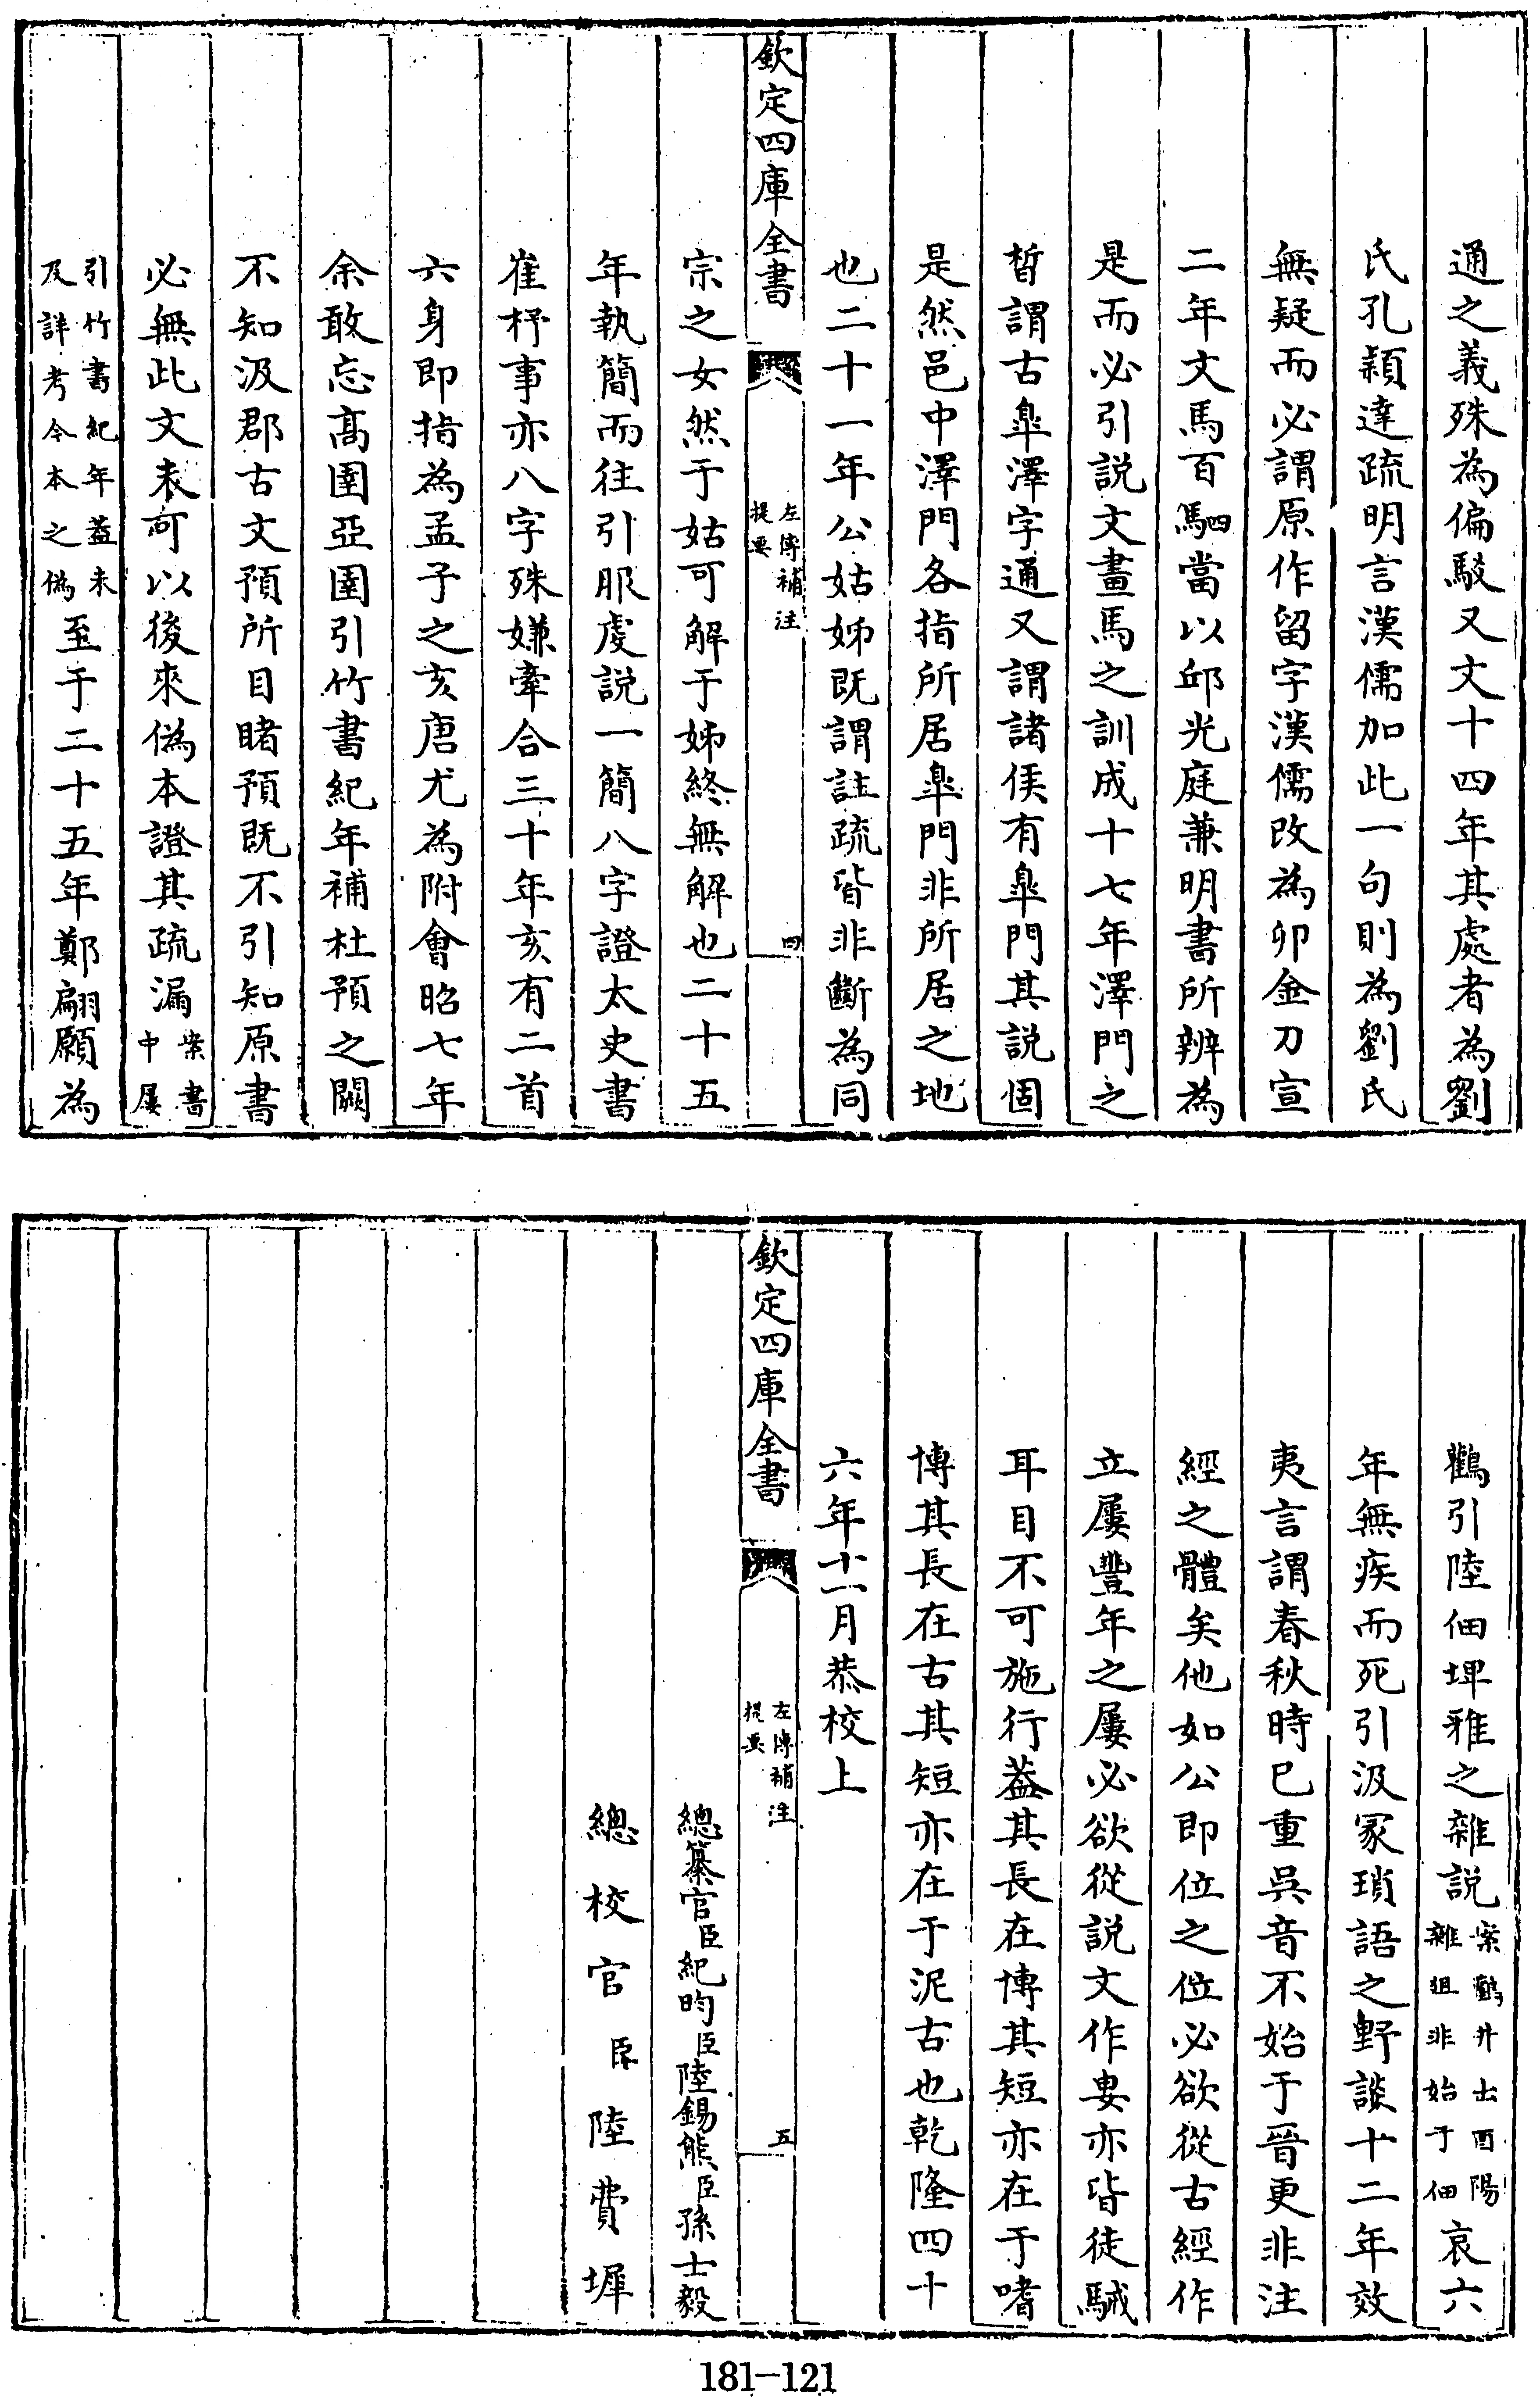 通之義殊為偏駁又文十四年其處者為劉
氏孔穎達疏明言漢儒加此一句則為劉氏
無疑而必謂原作留字漢儒改為卯金刀宣
二年文馬百駟當以邱光庭兼明書所辨為
是而必引説文畫馬之訓成十七年澤門之
晳謂古臯澤字通又謂諸侯有臯門其説固
是然邑中澤門各指所居臯門非所居之地
也二十一年公姑姊既謂註疏皆非斷為同
欽定四庫全書
左傳補注
提要
四
宗之女然于姑可解于姊終無解也二十五
年執簡而往引服虔説一簡八字證太史書
崔杼事亦八字殊嫌牽合三十年亥有二首
六身即指為孟子之亥唐尤為附會昭七年
余敢忘高圉亞圉引竹書紀年補杜預之闕
不知汲郡古文預所目睹預既不引知原書
必無此文未可以後來偽本證其疏漏案書
中屢
引竹書紀年蓋未
及詳考今本之偽至于二十五年鄭翩願為
鸛引陸佃埤雅之雜説案鸛井出酉陽
雜俎非始于佃哀六
年無疾而死引汲冢瑣語之野談十二年效
夷言謂春秋時已重吳音不始于晉更非注
經之體矣他如公即位之位必欲從古經作
立屢豐年之屢必欲從説文作婁亦皆徒駴
耳目不可施行蓋其長在博其短亦在于嗜
博其長在古其短亦在于泥古也乾隆四十
六年十一月恭校上
欽定四庫全書
左傳補注
提要
五
總纂官臣紀昀臣陸錫熊臣孫士毅
總校官臣陸費墀
181-121